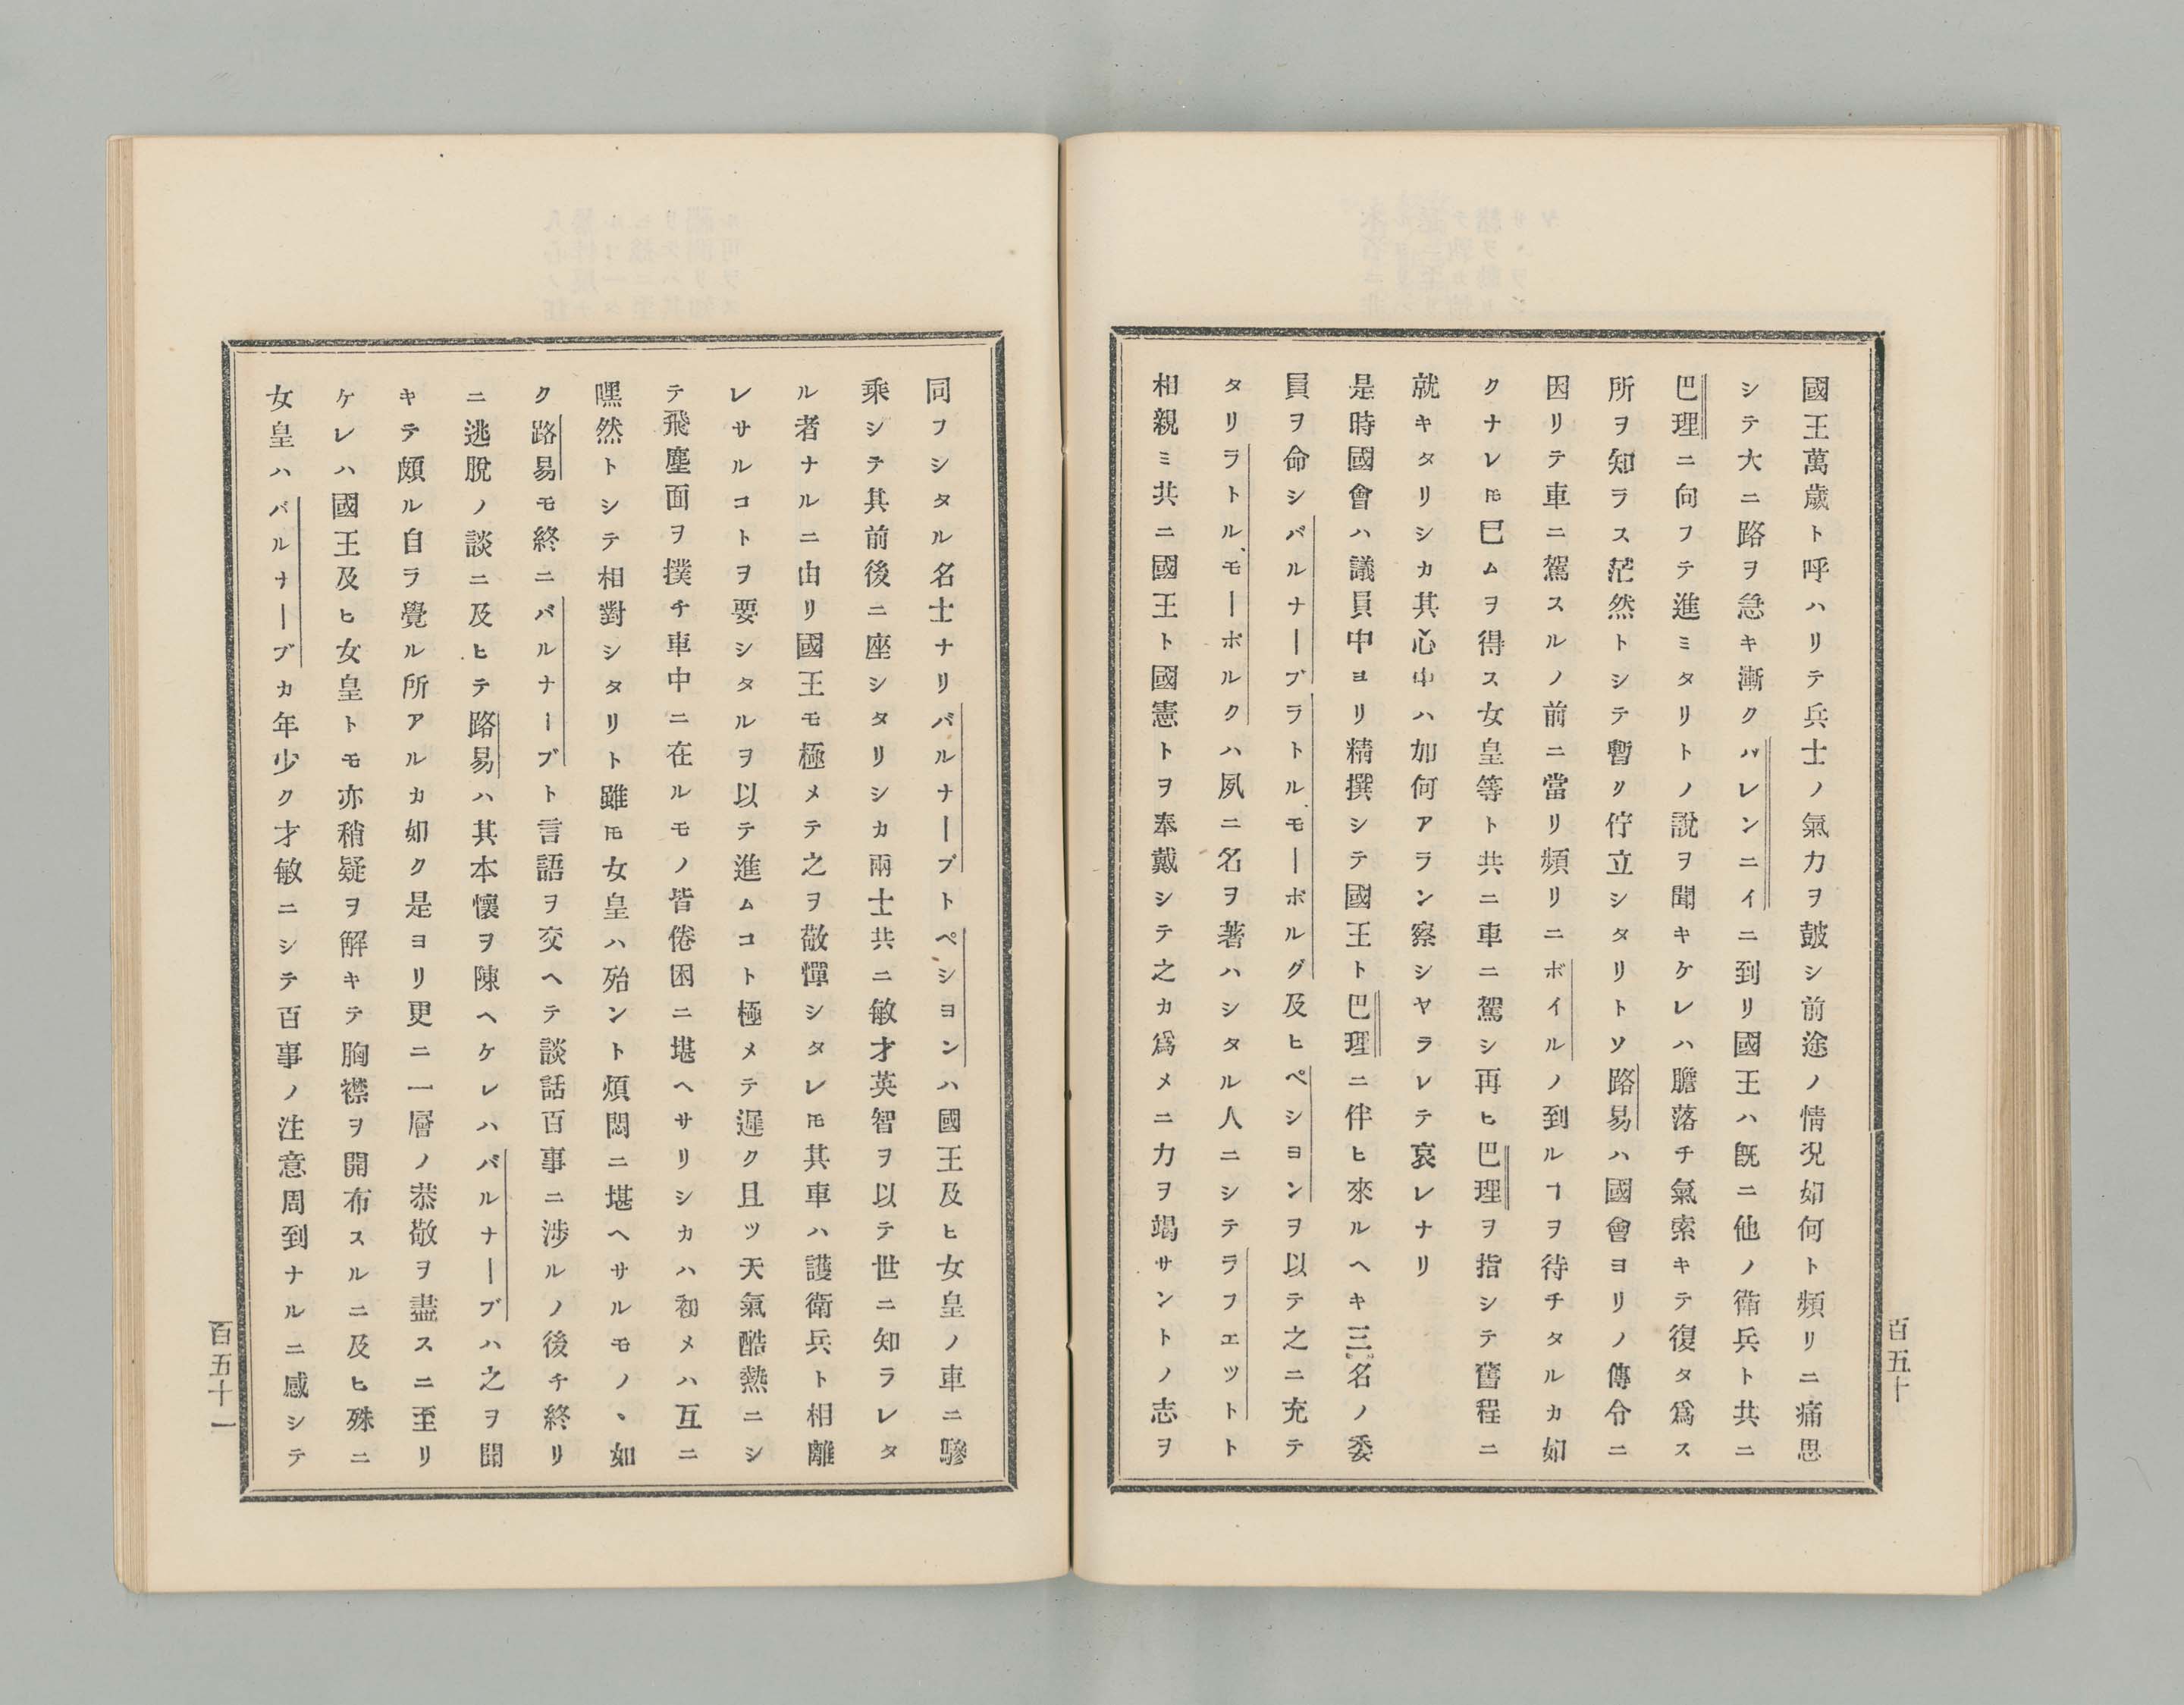 國王萬歲ト呼ハリテ兵士ノ氣力ヲ鼓シ前途ノ情況如何ト頻リニ痛思
シテ大ニ路ヲ急キ漸クバレンニイニ到リ國王ハ既ニ他ノ衛兵ト共ニ
巴理ニ向フテ進ミタリトノ說ヲ聞キケレハ膽落チ氣索キテ復タ爲ス
所ヲ知ラス茫然トシテ暫ク佇立シタリトソ路易ハ國會ヨリノ傳令ニ
因リテ車ニ駕スルノ前ニ當リ頻リニボイルノ到ルヿヲ待チタルカ如
クナレ𪜈巳ムヲ得ス女皇等ト共ニ車ニ駕シ再ヒ巴理ヲ指シテ舊程ニ
就キタリシカ其心中ハ如何アラン察シヤラレテ哀レナリ
是時國會ハ議員中ヨリ精撰シテ國王ト巴理ニ伴ヒ來ルヘキ三名ノ委
員ヲ命シバルナーブラトル、モーボルグ及ヒペシヨンヲ以テ之ニ充テ
タリラトル、モーボルクハ夙ニ名ヲ著ハシタル人ニシテラフエツトト
相親ミ共ニ國王ト國憲トヲ奉戴シテ之カ爲メニ力ヲ竭サントノ志ヲ
百五十
同フシタル名士ナリバルナーブトペシヨンハ國王及ヒ女皇ノ車ニ驂
乘シテ其前後ニ座シタリシカ兩士共ニ敏才英智ヲ以テ世ニ知ラレタ
ル者ナルニ由リ國王モ極メテ之ヲ敬憚シタレ𪜈其車ハ護衛兵ト相離
レサルコトヲ要シタルヲ以テ進ムコト極メテ遲ク且ツ天氣酷熱ニシ
テ飛塵面ヲ撲チ車中ニ在ルモノ皆倦困ニ堪ヘサリシカハ初メハ互ニ
嘿然トシテ相對シタリト雖𪜈女皇ハ殆ント煩悶ニ堪ヘサルモノヽ如
ク路易モ終ニバルナーブト言語ヲ交ヘテ談話百事ニ涉ルノ後チ終リ
ニ逃脫ノ談ニ及ヒテ路易ハ其本懷ヲ陳ヘケレハバルナーブハ之ヲ聞
キテ頗ル自ラ覺ル所アルカ如ク是ヨリ更ニ一層ノ恭敬ヲ盡スニ至リ
ケレハ國王及ヒ女皇トモ亦稍疑ヲ解キテ胸襟ヲ開布スルニ及ヒ殊ニ
女皇ハバルナーブカ年少ク才敏ニシテ百事ノ注意周到ナルニ感シテ
百五十一